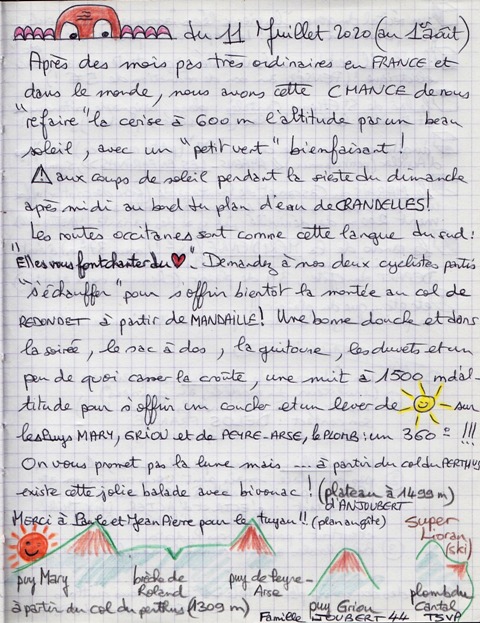 du 11 Juillet 2020 (au 1er août)
Après des mois pas très ordinaires en FRANCE et
dans le monde, nous avons cette CHANCE de nous
"refaire" la cerise à 600 m l'altitude par un beau
soleil, avec un "petit vent" bienfaisant !
⚠ aux coups de soleil pendant la sieste du dimanche
après midi au bord du plan d'eau de CRANDELLES!
Les routes occitanes sont comme cette langue du sud :
"Elles vous font chanter du ♥". Demandez à nos deux cyclistes partis
"s'échauffer" pour s'offrir bientôt la montée au col de
REDONDET à partir de MANDAILLE! Une bonne douche et dans
la soirée, le sac à dos, la guitoune, les duvets et un
peu de quoi casser la croûte, une nuit à 1500 m d'al-
titude pour s'offrir un coucher et un lever de sur
les Puys MARY, GRIOU et de PEYRE-ARSE, le PLOMB : un 360° !!!
On vous promet pas la lune mais .... à partir du col du PERTHUS
existe cette jolie balade avec bivouac ! (plateau à 1499 m)
d'ANJOUBERT
MERCI à Paule et Jean Pierre pour le tuyau !! (plan au gîte)
Super
Lioran
(ski)
puy Mary
brèche de
Roland
puy de Peyre-
Arse
puy Griou
plomb du
Cantal
à partir du col du perthus (1309 m)
Famille JOUBERT 44 TSVP